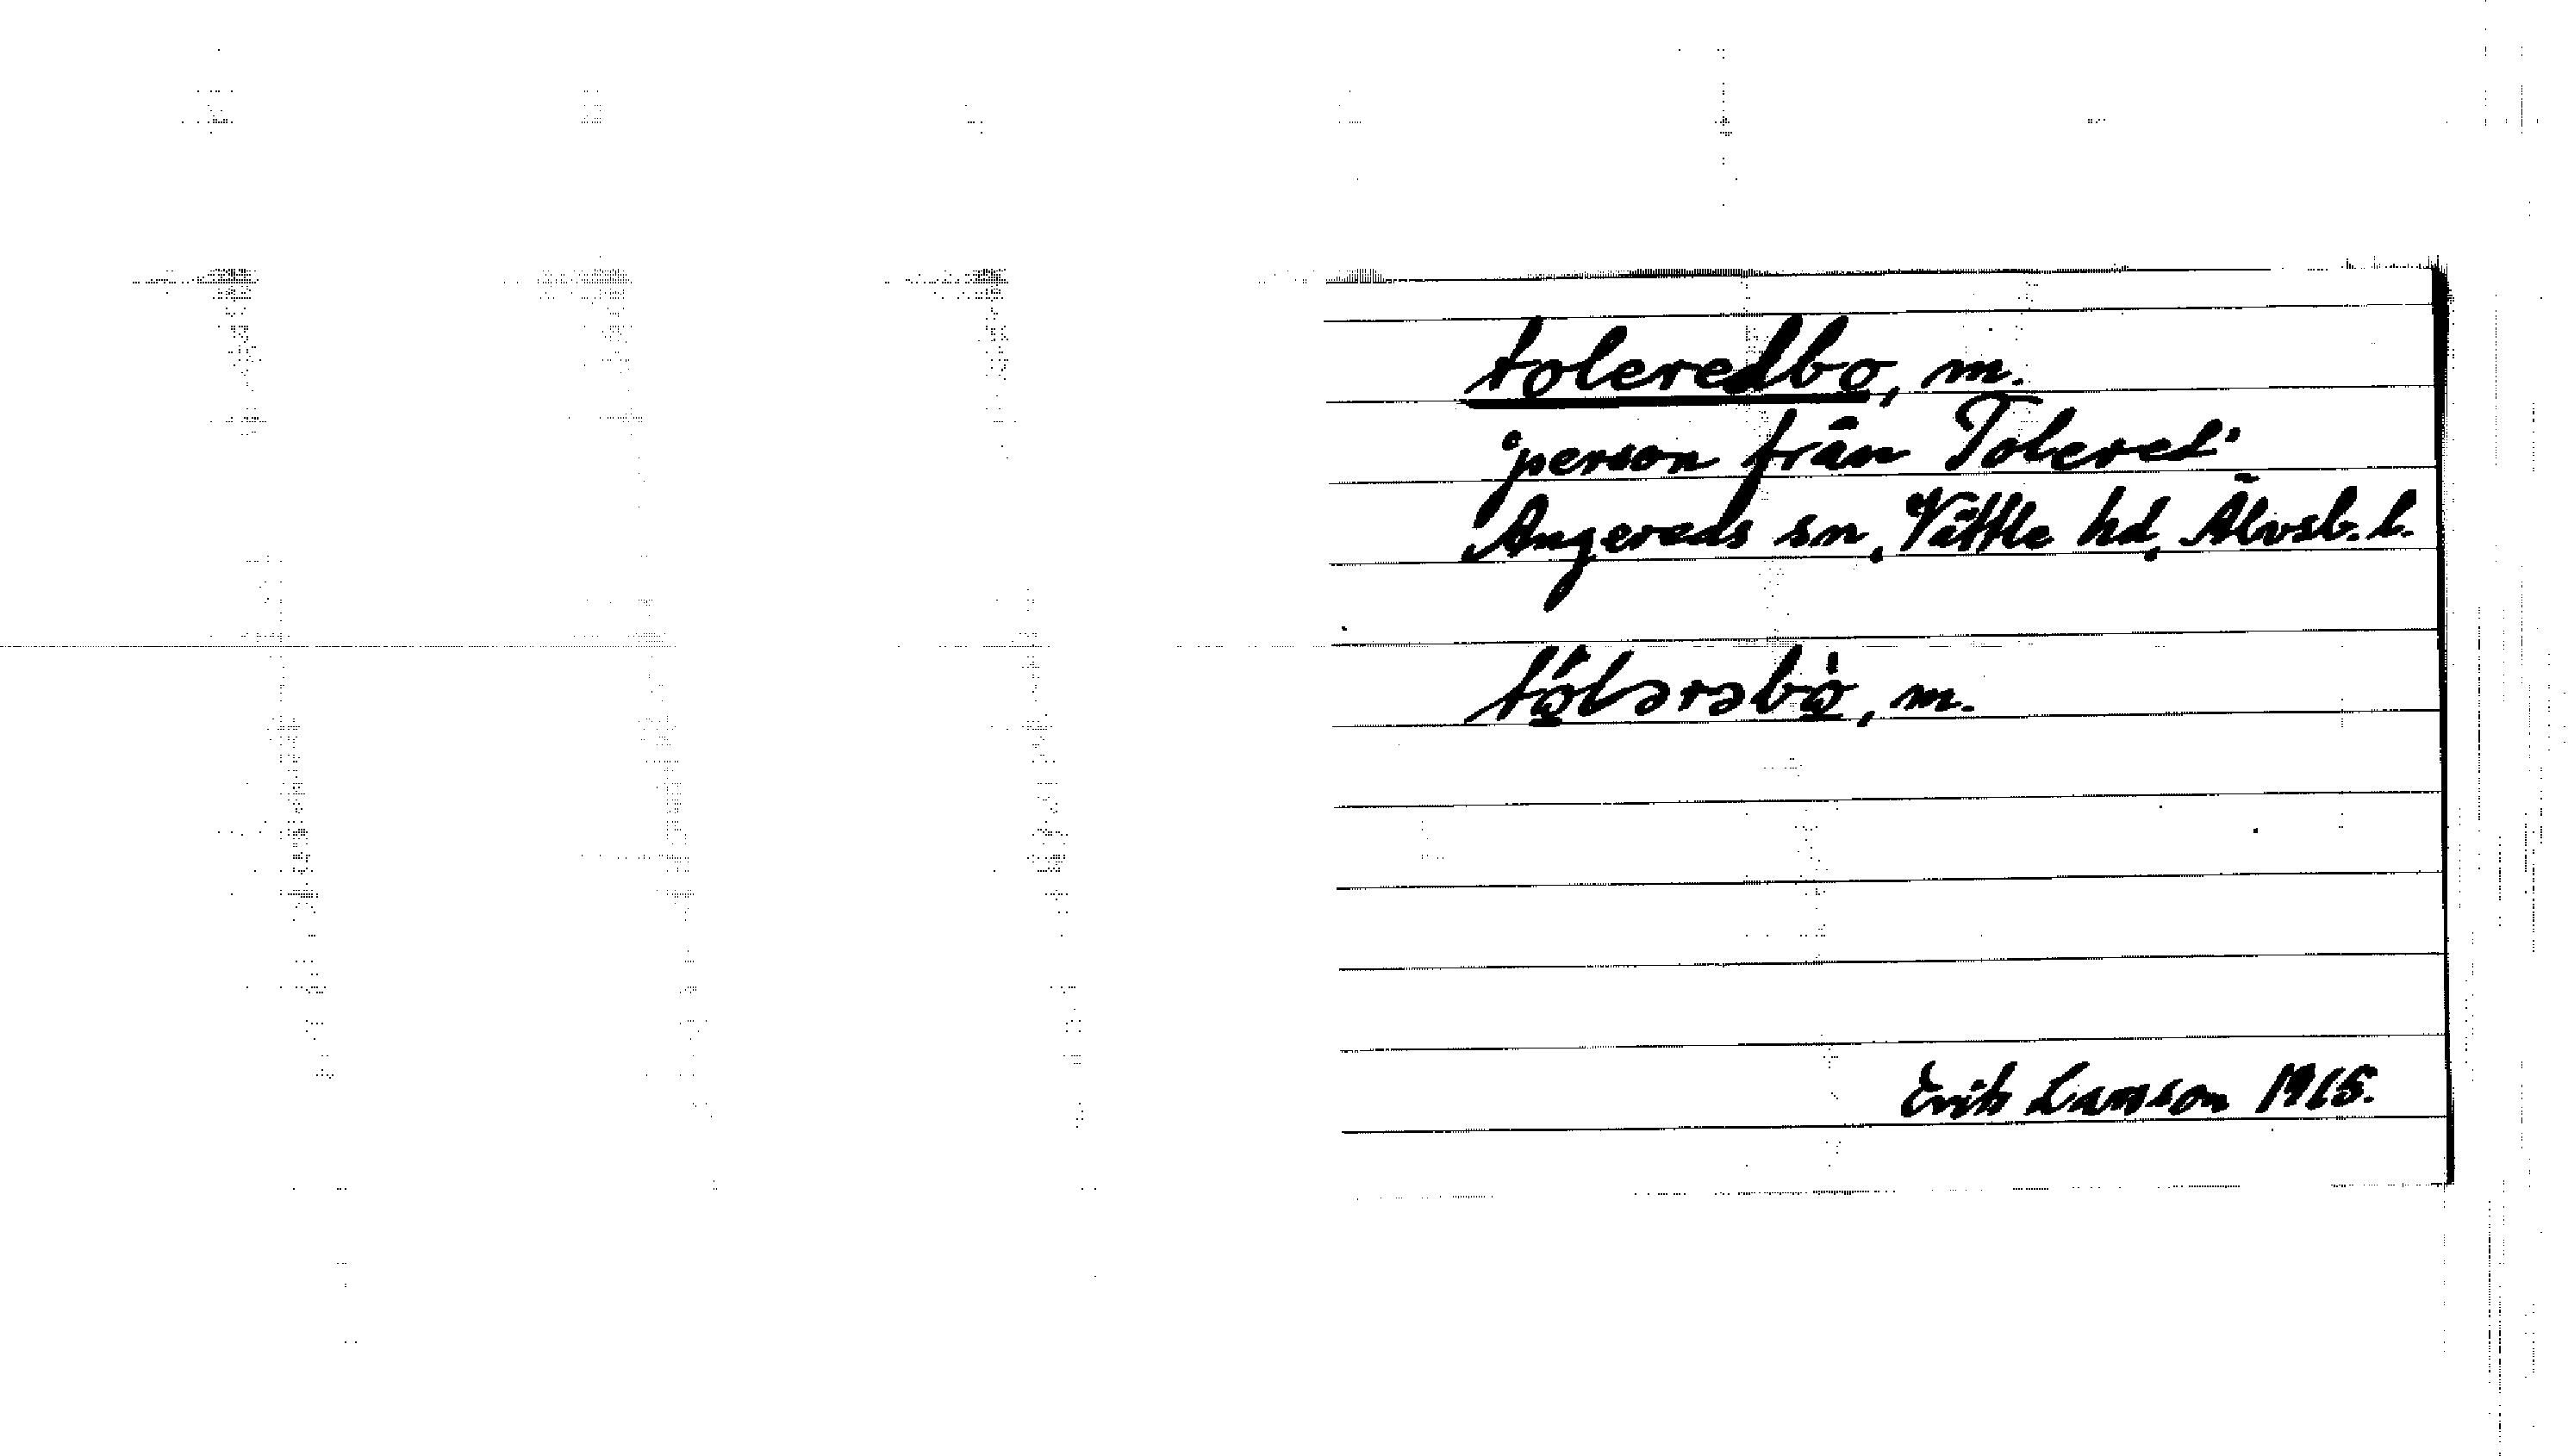 toleredbo, m.
'person från Tolered'
Angereds sn, Vättle hd, Älvsb. l.
tólərəbò, m.
Erik Larsson 1915.